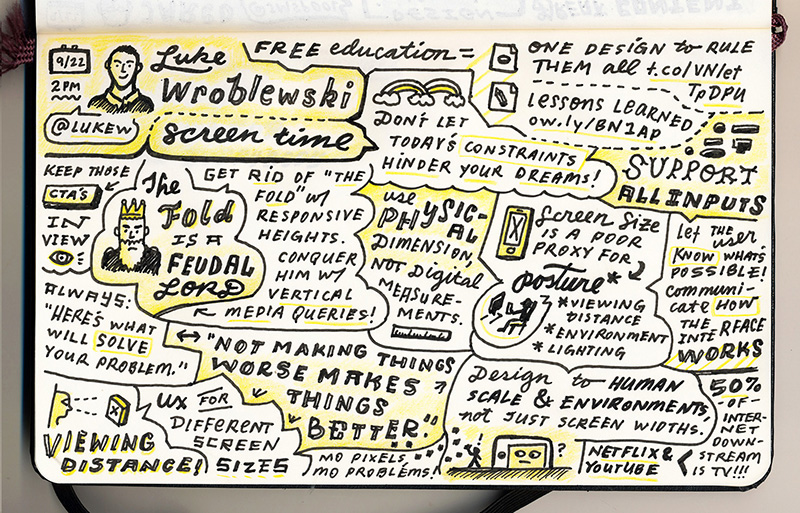 9/22
2PM
@LUKEW
Luke
Wroblewski
screen time
FREE education =
ONE DESIGN to RULE
THEM all t.co/VN1et
TpDPU
lessons LEARNED
ow.ly/BN1AP
DON't LET
TODAY'S CONSTRAINTS
HINDER YOUR DREAMS!
SUPPORT
ALL INPUTS
KEEP THOSE
CTA'S
IN
VIEW
The
Fold
IS A
FEUDAL
LORD
GET RID OF "THE
FOLD" W/
RESPONSIVE
HEIGHTS.
CONQUER
HIM W/
VERTICAL
MEDIA QUERIES!
use
PHYSIC-
AL
DIMENSION,
NOT Digital
MEASURE-
MENTS.
Screen Size
IS A POOR
PROXY FOR
posture*
*VIEWING
DISTANCE
*ENVIRONMENT
*LIGHTING
let THE user
KNOW WHAT'S
POSSIBLE!
communi-
cate HOW
THE
INTERFACE
WORKS
ALWAYS:
"HERE'S WHAT
WILL SOLVE
YOUR PROBLEM."
"NOT MAKING THINGS
WORSE MAKES
THINGS
BETTER."
Design to HUMAN
SCALE & ENVIRONMENTS,
not JUST SCREEN WIDTHS.
50%
OF
INTER-
NET
DOWN-
STREAM
IS TV!!!
NETFLIX &
YOUTUBE
VIEWING
DISTANCE!
UX FOR
DIFFERENT
SCREEN
SIZES
MO PIXELS,
MO PROBLEMS!
?